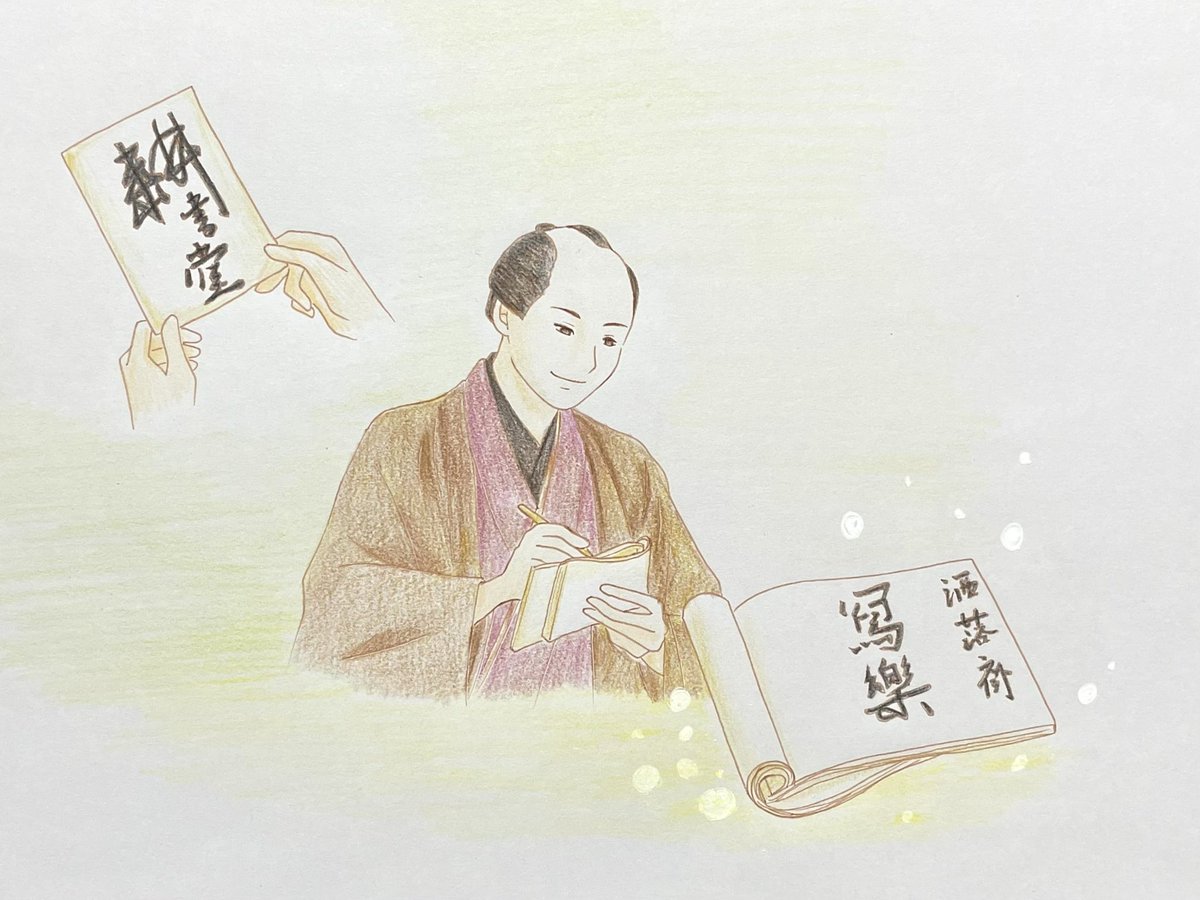 耕書堂
洒落斎
寫樂